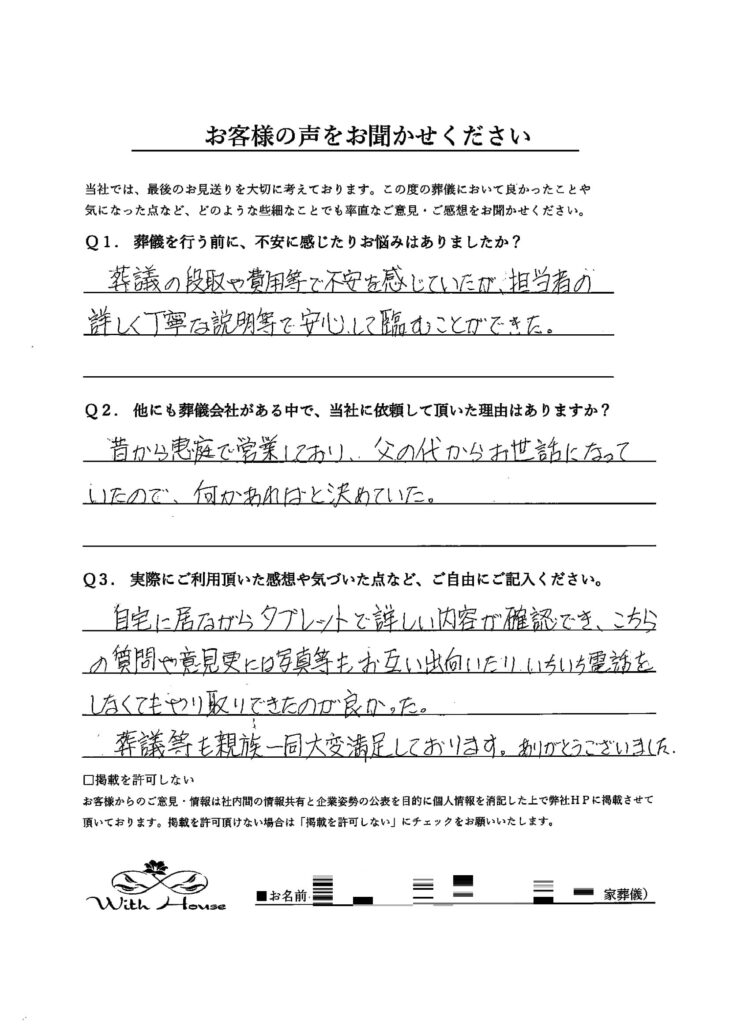 お客様の声をお聞かせください
当社では、最後のお見送りを大切に考えております。この度の葬儀において良かったことや
気になった点など、どのような些細なことでも率直なご意見・ご感想をお聞かせください。
Q1. 葬儀を行う前に、不安に感じたりお悩みはありましたか？
葬議の段取や費用等で不安を感じていたが、担当者の
詳しく丁寧な説明等で安心して臨むことができた。
Q2. 他にも葬儀会社がある中で、当社に依頼して頂いた理由はありますか？
昔から恵庭で営業しており、父の代からお世話になって
いたので、何かあればと決めていた。
Q3. 実際にご利用頂いた感想や気づいた点など、ご自由にご記入ください。
自宅に居ながらタブレットで詳しい内容が確認でき、こちら
の質問や意見更には写真等もお互い出向いたりいちいち電話を
しなくてもやり取りできたのが良かった。
葬議等も親族一同大変満足しております。ありがとうございました.
□掲載を許可しない
お客様からのご意見・情報は社内間の情報共有と企業姿勢の公表を目的に個人情報を消記した上で弊社HPに掲載させて
頂いております。掲載を許可頂けない場合は「掲載を許可しない」にチェックをお願いいたします。
With House
■お名前 家葬儀）